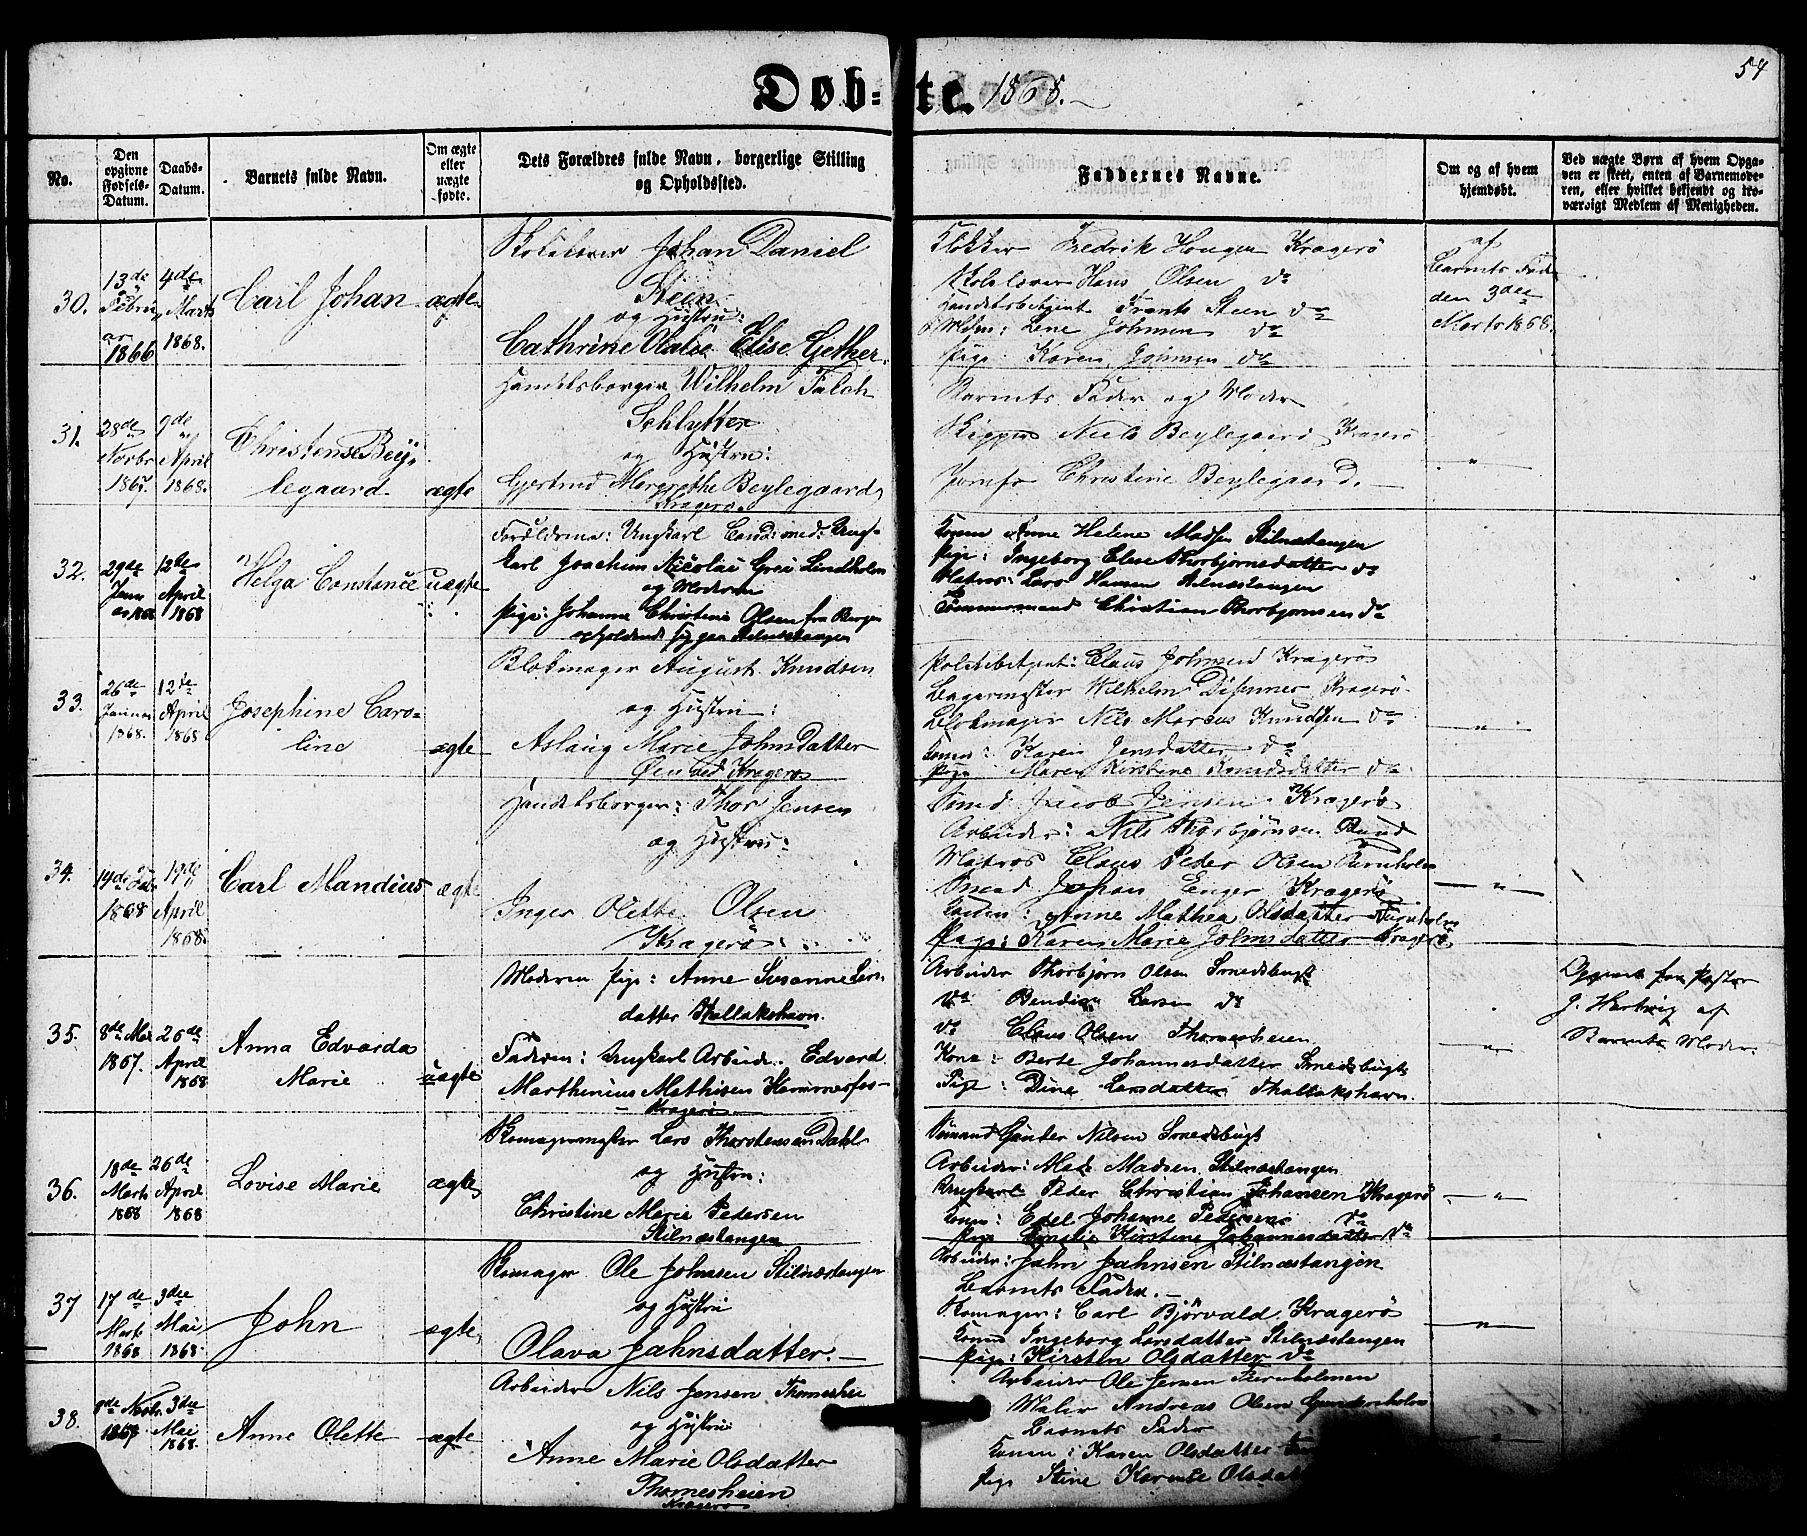 54
Døb-te. 1868.
No.
Den opgivne Fødsels-Datum.
Daabs-Datum.
Barnets fulde Navn.
Om ægte eller uægte fødte.
Dets Forældres fulde Navn, borgerlige Stilling og Opholdssted.
Faddernes Navne.
Om og af hvem hjemdøbt.
Ved uægte Børn af hvem Opgaven er skeet, enten af Barnemoderen, eller hvilket bekjendt og troværdigt Medlem af Menigheden.
30.
13de Februar 1866
4de Marts 1868.
Carl Johan
ægte
Skolelærer Johan Daniel
Steen
og Hustru:
Cathrine Olalie Elise Gether.
Klokker Fredrik Haugen Kragerö
Skolelærer Hans Olsen do
Handelsbetjent Frants Steen do
Lene Johnsen do
Pige Karen do
af
Barnets Fader
den 3die
Marts 1868.
31.
28de Novbr 1867.
9de April 1868.
Christense Beylegaard
ægte
Handelsborger Wilhelm Falch
Schlytter
og Hustru:
Gjertrud Margrethe Beylegaard
Kragerö.
Barnets Fader og Moder
Skipper Niels Beylegaard Kragerö
Jomfr Christine Beylegaard.
32.
29de Januar 1868
12te April 1868
Helga Constance
uægte
Forældrene: Ungkarl Ungkarl Joachim Nicolai Lindholm
og Moderen
Pige: Johanne Christine Olsen fra Bergen
opholdende sig paa Stilnæstangen
Konen Anne Helene Madsen Stilnæstangen
Pige: Ingeborg Elise Thorbjørnsdatter do
Matros: Lars Hansen Stilnæstangen
Tømmermand Christian Thorbjørnsen do
33.
26de Januar 1868.
12te April 1868
Josephine Caroline
ægte
Blokmager August Knudsen
og Hustru:
Aslaug Marie Johnsdatter
Øen ved Kragerö
Politibetjent: Claus Johnsen Kragerö
Wilhelm Kragerö.
Blokmager Nils Marcus Knudsen do
Konen: Karen Jensdatter do
Pige Maren Kirstine Knudsdatter do
34.
19de Febr 1868
19de April 1868.
Carl Mandius
ægte
Handelsborger: Thor Jensen
og Hustru:
Inger Olette Olsen
Kragerö
Smed Jacob Jensen Kragerö
Arbeider: Nils Thorbjørnsen
Matros Claus Peder Olsen Furuholm
Smed Johan Enger Kragerö
Konen: Anne Mathea Olsdatter Furuholm
Pige: Karen Marie Johnsdatter Kragerö
35.
8de Mai 1867.
26de April 1868
Anna Edvarda
Marie
uægte
Moderen Pige: Anne Susanne Larsdatter Thallakshavn.
Faderen: Ungkarl Arbeider Edvard
Marthinius Mathisen Hammerfos
Kragerö
Arbeider Thorbjörn Olsen Smedsbugt
do Bendix Larsen do
do Claus Olsen Thomesheien
Kone: Berte Johannesdatter Smedsbugt
Pige: Dina Larsdatter Thallakshavn.
Opgivet for Pastor
J. Hartvig af
Barnets Moder.
36.
18de Marts 1868
26de April 1868
Lovise Marie
ægte
Skomagermester Lars Thorstensen Dahl
og Hustru:
Christine Marie Pedersen
Stilnæstangen
Sömand Gunder Nilsen Smedsbugt
Arbeider: Mads Madsen Stilnæstangen
Ungkarl Peder Christian Johansen Kragerö
Konen: Edel Johanne Pedersen do
Pige Emelie Kirstine Johannesdatter do
37
17de Marts 1868
3die Mai 1868.
John
ægte
Skomager Ole Johnsen Stilnæstangen
og Hustru
Olava Jahnsdatter.
Arbeider: Jahn Jahnsen Stilnæstangen
Barnets Fader.
Skomager: Carl Björvald Kragerö
Konen Ingeborg Larsdatter Stilnæstangen
Pige: Kirsten Olsdatter do
38.
Novbr. 1867
3die Mai 1868.
Anne Olette
ægte
Arbeider Nils Jensen Thomeshei
og Hustru
Anne Marie Olsdatter
Thomesheien
Kragerö
Arbeider Ole Jensen Furuholmen
Maler Andreas Olsen Gundersholm
Barnets Fader
Konen: Karen Olsdatter
Pige Stine Karine Olsdat